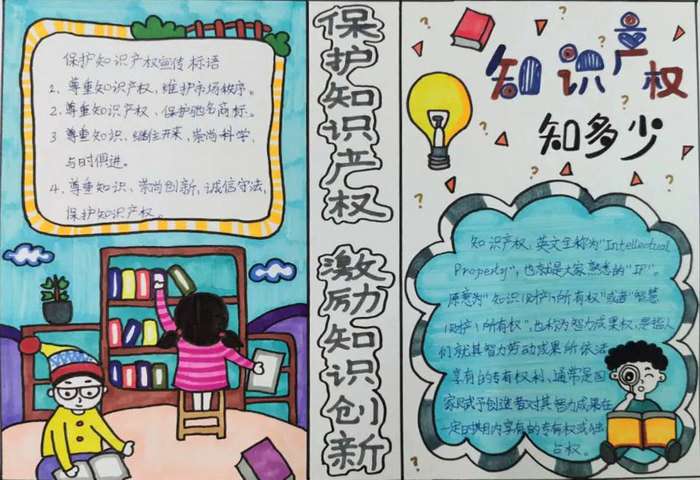 保护知识产权宣传标语
1、尊重知识产权、维护市场秩序。
2、尊重知识产权、保护驰名商标。
3 尊重知识、继往开来、崇尚科学、
与时俱进。
4、尊重知识、崇尚创新、诚信守法、
保护知识产权。
保护知识产权
激励知识创新
知识产权
知多少
?
?
?
?
?
知识产权,英文全称为"Intellectual
Property",也就是大家熟悉的"IP"。
原意为"知识(财产)所有权"或者"智慧
(财产)所有权",也称为智力成果权,是指人
们就其智力劳动成果所依法
享有的专有权利,通常是国
家赋予创造者对其智力成果在
一定时期内享有的专有权或独
占权。